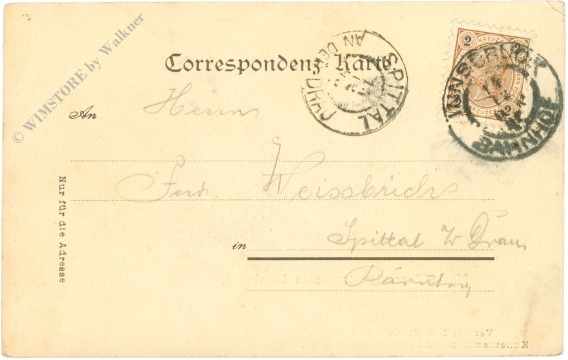 © WIMSTORE by Walkner
Correspondenz Karte
SPITTAL
AN DER DRAU
2
INNSBRUCK
BAHNHOF
An
Herrn
Ferd. Weissbrich
in
Spittal a/ Drau
Kärnten
Nur für die Adresse